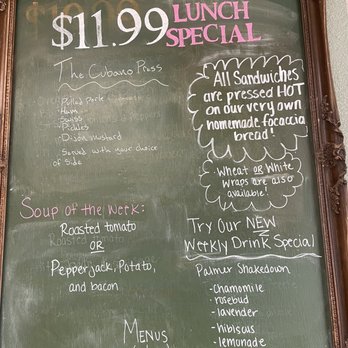 $11.99 LUNCH SPECIAL
The Cubano Press
- Pulled pork
- Ham
- Swiss
- Pickles
- Dijon mustard
- Served with your choice of side
All Sandwiches
are pressed HOT
on our very own
homemade focaccia
bread!
Wheat or White
wraps are also
available!
Soup of the Week:
Roasted tomato
OR
Pepperjack, Potato,
and bacon
Try Our NEW
Weekly Drink Special
Palmer Shakedown
- Chamomile
- rosebud
- lavender
- hibiscus
- lemonade
MENUS